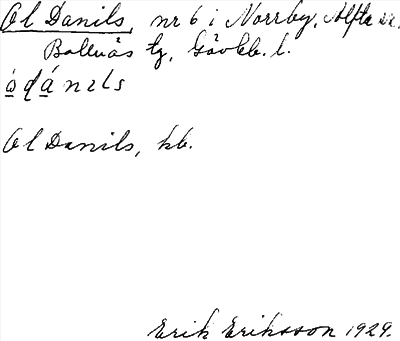 Ol Danils, nr 6 i Norrby, Alfta sn.
Bollnäs tg, Gävleb. l.
ò d á n ɩ l s
Ol Danils, kb.
Erik Eriksson 1929.